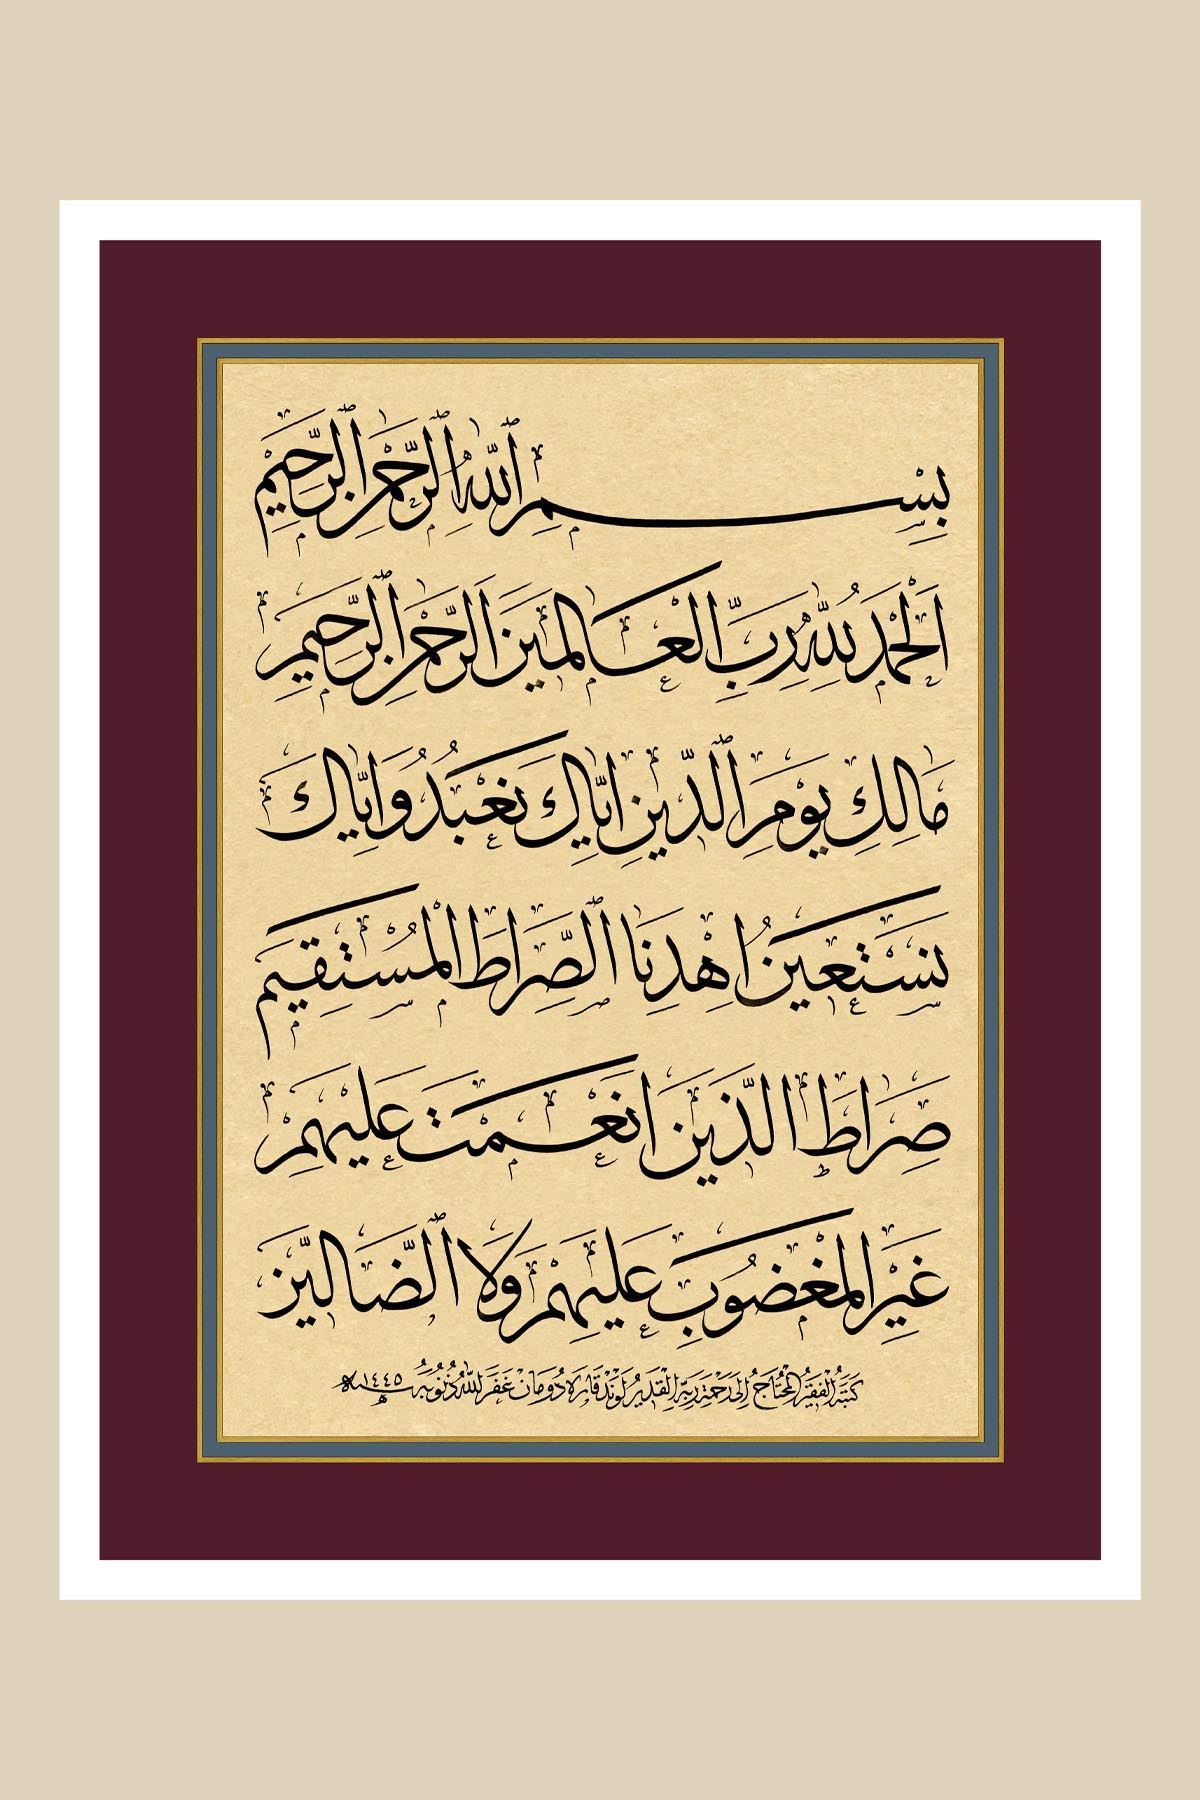 بِسْمِ اللّٰهِ الرَّحْمٰنِ الرَّحِيمِ
اَلْحَمْدُ لِلّٰهِ رَبِّ الْعَالَمِينَ الرَّحْمٰنِ الرَّحِيمِ
مَالِكِ يَوْمِ الدِّينِ اِيَّاكَ نَعْبُدُ وَاِيَّاكَ
نَسْتَعِينُ اِهْدِنَا الصِّرَاطَ الْمُسْتَقِيمَ
صِرَاطَ الَّذِينَ اَنْعَمْتَ عَلَيْهِمْ
غَيْرِ الْمَغْضُوبِ عَلَيْهِمْ وَلَا الضَّالِّينَ
كَتَبَهُ الْفَقِيرُ الْمُحْتَاجُ اِلَى رَحْمَةِ رَبِّهِ الْقَدِيرِ لَوَنْدْ قَارَه دُومَانْ غَفَرَ اللّٰهُ ذُنُوبَهُ سنة ١٤٤٥ هـ